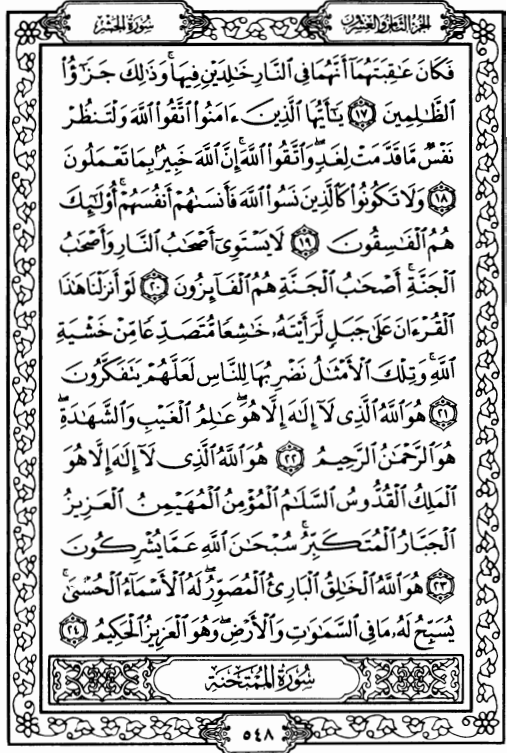 سُورَةُ الحَشْرِ
الجُزءُ الثَّامِنُ وَالعِشْرُونَ
فَكَانَ عَٰقِبَتَهُمَآ أَنَّهُمَا فِي ٱلنَّارِ خَٰلِدَيْنِ فِيهَاۚ وَذَٰلِكَ جَزَٰٓؤُا۟
ٱلظَّٰلِمِينَ ١٧ يَٰٓأَيُّهَا ٱلَّذِينَ ءَامَنُوا۟ ٱتَّقُوا۟ ٱللَّهَ وَلْتَنظُرْ
نَفْسٌ مَّا قَدَّمَتْ لِغَدٍۖ وَٱتَّقُوا۟ ٱللَّهَۚ إِنَّ ٱللَّهَ خَبِيرٌۢ بِمَا تَعْمَلُونَ
١٨ وَلَا تَكُونُوا۟ كَٱلَّذِينَ نَسُوا۟ ٱللَّهَ فَأَنسَىٰهُمْ أَنفُسَهُمْۚ أُو۟لَٰٓئِكَ
هُمُ ٱلْفَٰسِقُونَ ١٩ لَا يَسْتَوِىٓ أَصْحَٰبُ ٱلنَّارِ وَأَصْحَٰبُ
ٱلْجَنَّةِۚ أَصْحَٰبُ ٱلْجَنَّةِ هُمُ ٱلْفَآئِزُونَ ٢٠ لَوْ أَنزَلْنَا هَٰذَا
ٱلْقُرْءَانَ عَلَىٰ جَبَلٍ لَّرَأَيْتَهُۥ خَٰشِعًا مُّتَصَدِّعًا مِّنْ خَشْيَةِ
ٱللَّهِۚ وَتِلْكَ ٱلْأَمْثَٰلُ نَضْرِبُهَا لِلنَّاسِ لَعَلَّهُمْ يَتَفَكَّرُونَ
٢١ هُوَ ٱللَّهُ ٱلَّذِى لَآ إِلَٰهَ إِلَّا هُوَۖ عَٰلِمُ ٱلْغَيْبِ وَٱلشَّهَٰدَةِۖ
هُوَ ٱلرَّحْمَٰنُ ٱلرَّحِيمُ ٢٢ هُوَ ٱللَّهُ ٱلَّذِى لَآ إِلَٰهَ إِلَّا هُوَ
ٱلْمَلِكُ ٱلْقُدُّوسُ ٱلسَّلَٰمُ ٱلْمُؤْمِنُ ٱلْمُهَيْمِنُ ٱلْعَزِيزُ
ٱلْجَبَّارُ ٱلْمُتَكَبِّرُۚ سُبْحَٰنَ ٱللَّهِ عَمَّا يُشْرِكُونَ
٢٣ هُوَ ٱللَّهُ ٱلْخَٰلِقُ ٱلْبَارِئُ ٱلْمُصَوِّرُۖ لَهُ ٱلْأَسْمَآءُ ٱلْحُسْنَىٰۚ
يُسَبِّحُ لَهُۥ مَا فِى ٱلسَّمَٰوَٰتِ وَٱلْأَرْضِۖ وَهُوَ ٱلْعَزِيزُ ٱلْحَكِيمُ ٢٤
سُورَةُ المُمْتَحنَةِ
٥٤٨